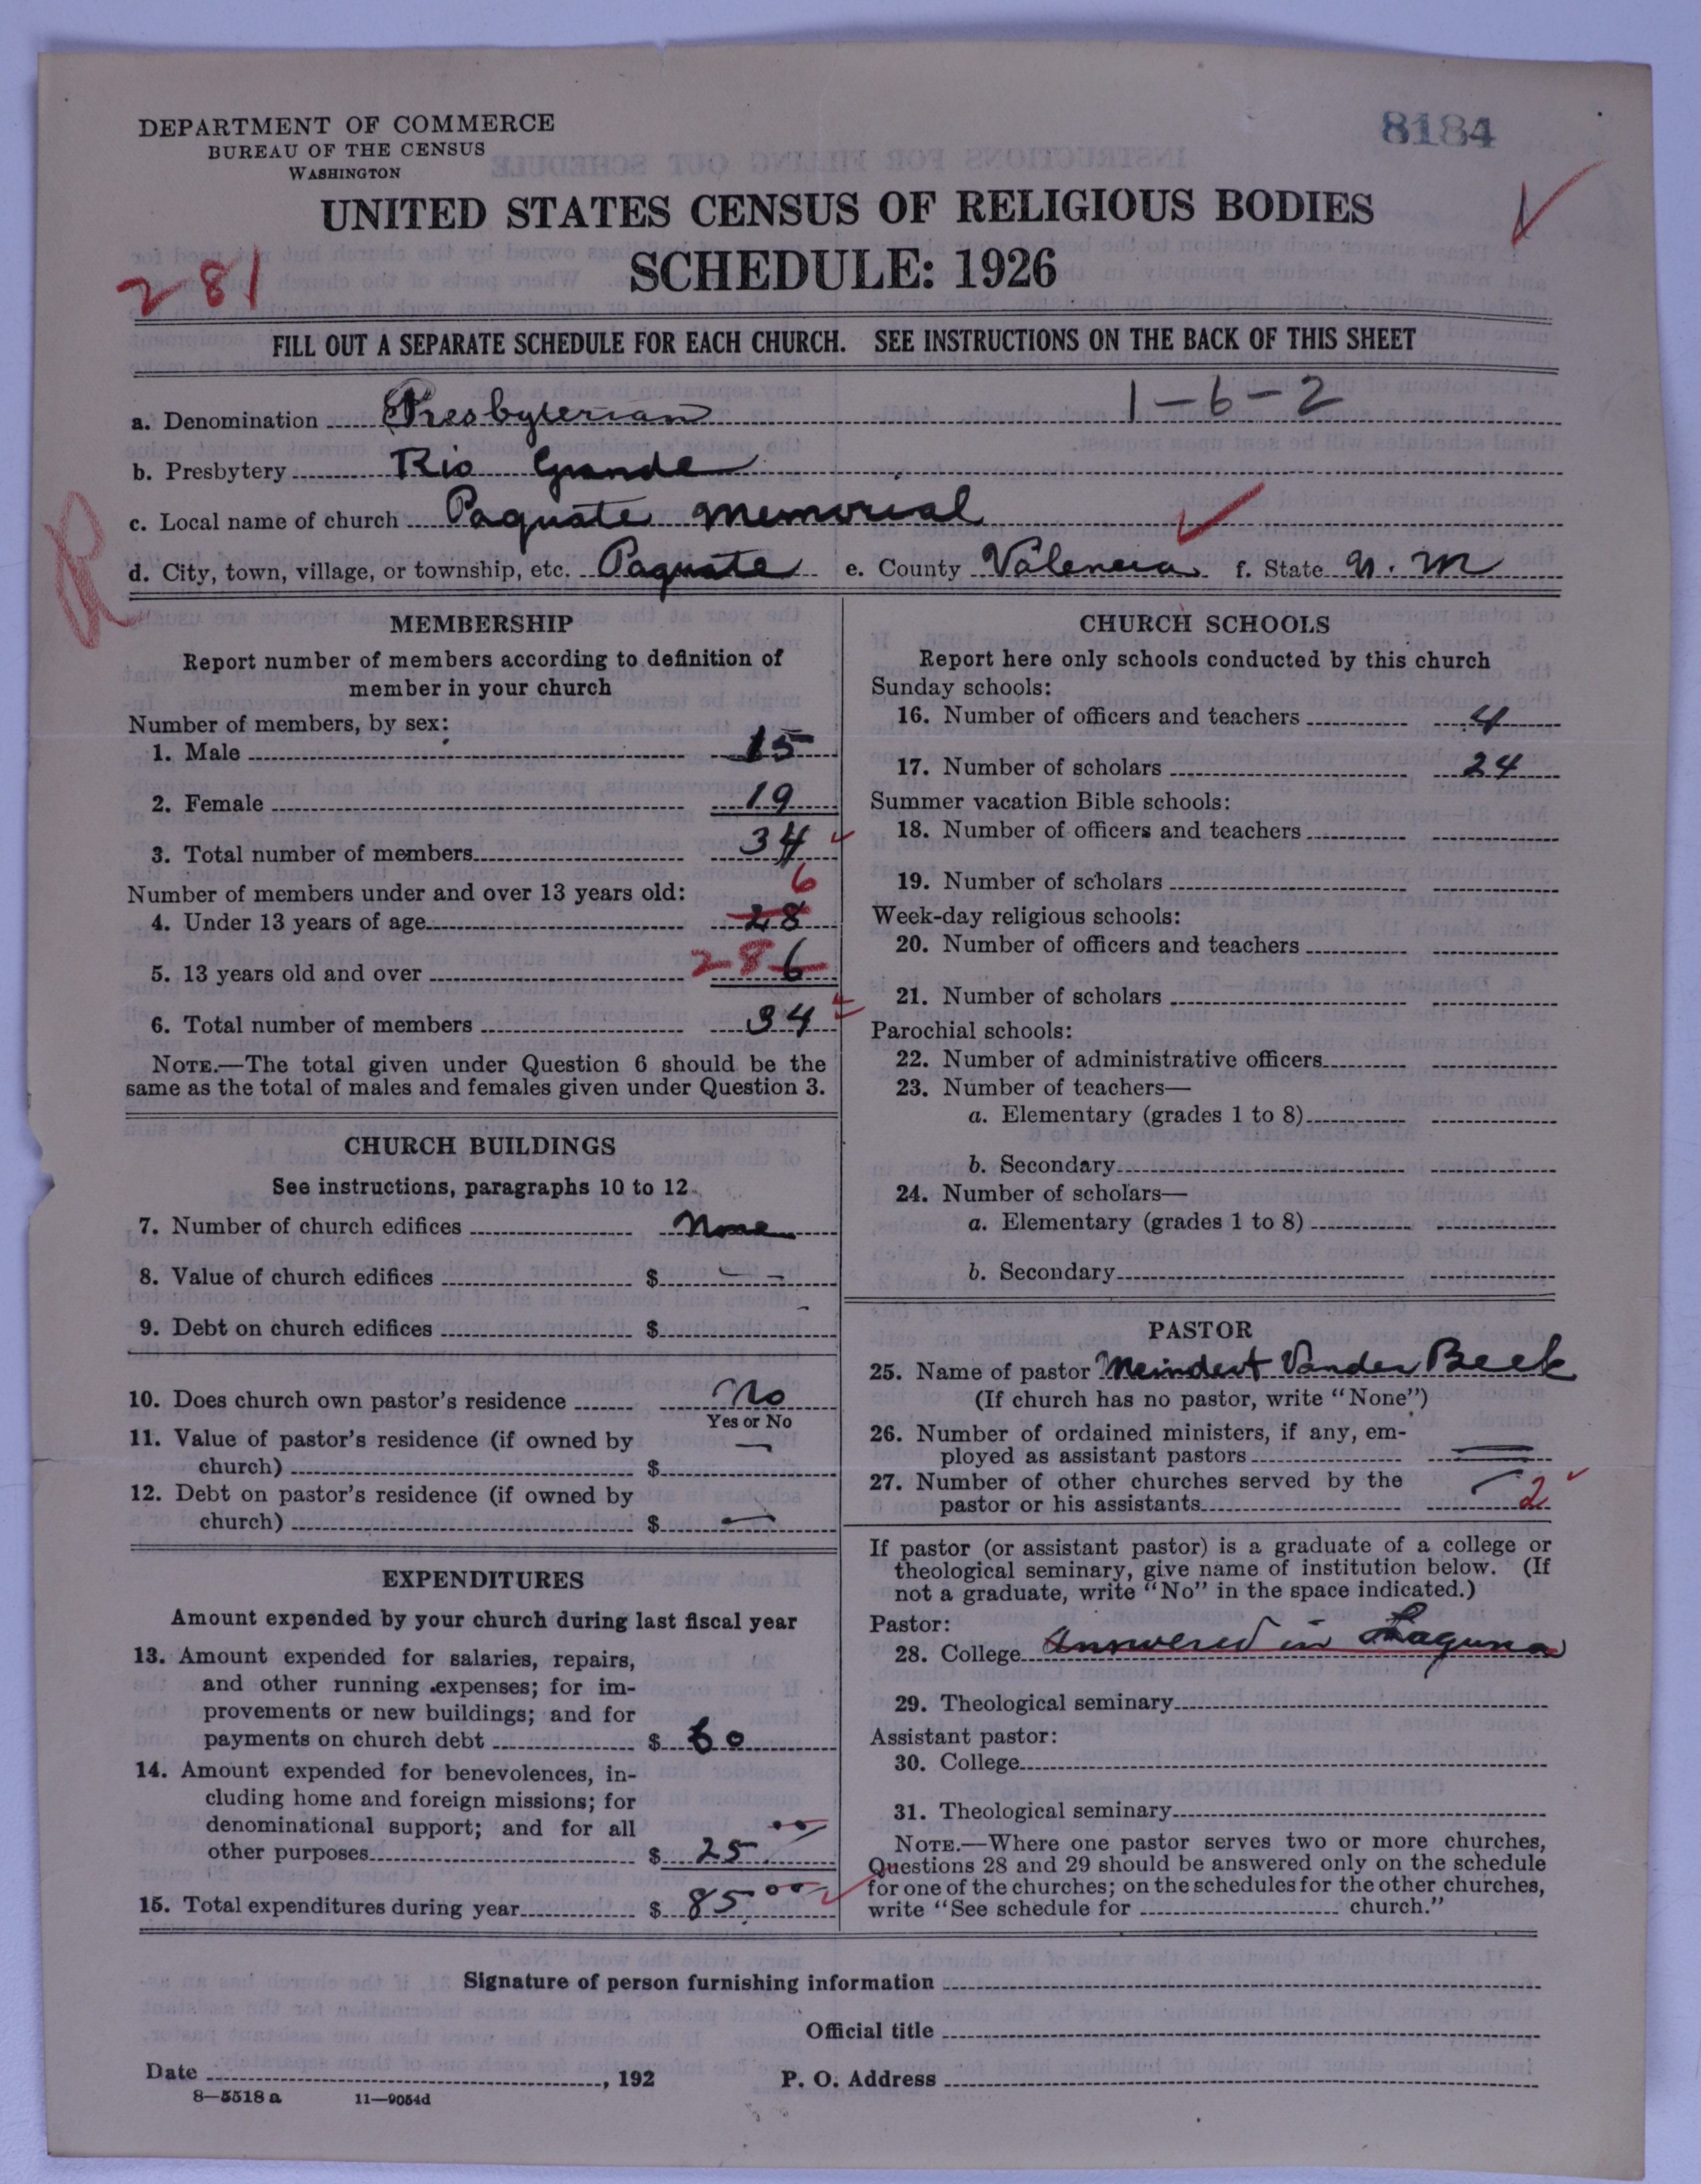 DEPARTMENT OF COMMERCE
BUREAU OF THE CENSUS
WASHINGTON
8184
UNITED STATES CENSUS OF RELIGIOUS BODIES
SCHEDULE: 1926
281
FILL OUT A SEPARATE SCHEDULE FOR EACH CHURCH. SEE INSTRUCTIONS ON THE BACK OF THIS SHEET
a. Denomination Presbyterian 1-6-2
b. Presbytery Rio Grande
c. Local name of church Paguate Memorial
R
d. City, town, village, or township, etc. Paguate e. County Valencia f. State N. M
MEMBERSHIP
Report number of members according to definition of
member in your church
Number of members, by sex:
1. Male 15
2. Female 19
3. Total number of members 34
Number of members under and over 13 years old: 6
4. Under 13 years of age 28
5. 13 years old and over 28 6
6. Total number of members 34
NOTE.—The total given under Question 6 should be the
same as the total of males and females given under Question 3.
CHURCH BUILDINGS
See instructions, paragraphs 10 to 12
7. Number of church edifices None
8. Value of church edifices $ — —
9. Debt on church edifices $
10. Does church own pastor's residence No
Yes or No
11. Value of pastor's residence (if owned by
church) $ —
12. Debt on pastor's residence (if owned by
church) $ —
EXPENDITURES
Amount expended by your church during last fiscal year
13. Amount expended for salaries, repairs,
and other running expenses; for im-
provements or new buildings; and for
payments on church debt $ 60
14. Amount expended for benevolences, in-
cluding home and foreign missions; for
denominational support; and for all
other purposes $ 25.00
15. Total expenditures during year $ 85.00
CHURCH SCHOOLS
Report here only schools conducted by this church
Sunday schools:
16. Number of officers and teachers 4
17. Number of scholars 24
Summer vacation Bible schools:
18. Number of officers and teachers
19. Number of scholars
Week-day religious schools:
20. Number of officers and teachers
21. Number of scholars
Parochial schools:
22. Number of administrative officers
23. Number of teachers—
a. Elementary (grades 1 to 8)
b. Secondary
24. Number of scholars—
a. Elementary (grades 1 to 8)
b. Secondary
PASTOR
25. Name of pastor Meindert Vander Beek
(If church has no pastor, write "None")
26. Number of ordained ministers, if any, em-
ployed as assistant pastors —
27. Number of other churches served by the
pastor or his assistants 2
If pastor (or assistant pastor) is a graduate of a college or
theological seminary, give name of institution below. (If
not a graduate, write "No" in the space indicated.)
Pastor:
28. College Answered in Laguna
29. Theological seminary
Assistant pastor:
30. College
31. Theological seminary
NOTE.—Where one pastor serves two or more churches,
Questions 28 and 29 should be answered only on the schedule
for one of the churches; on the schedules for the other churches,
write "See schedule for church."
Signature of person furnishing information
Official title
Date , 192 P. O. Address
8—5518 a 11—9054d